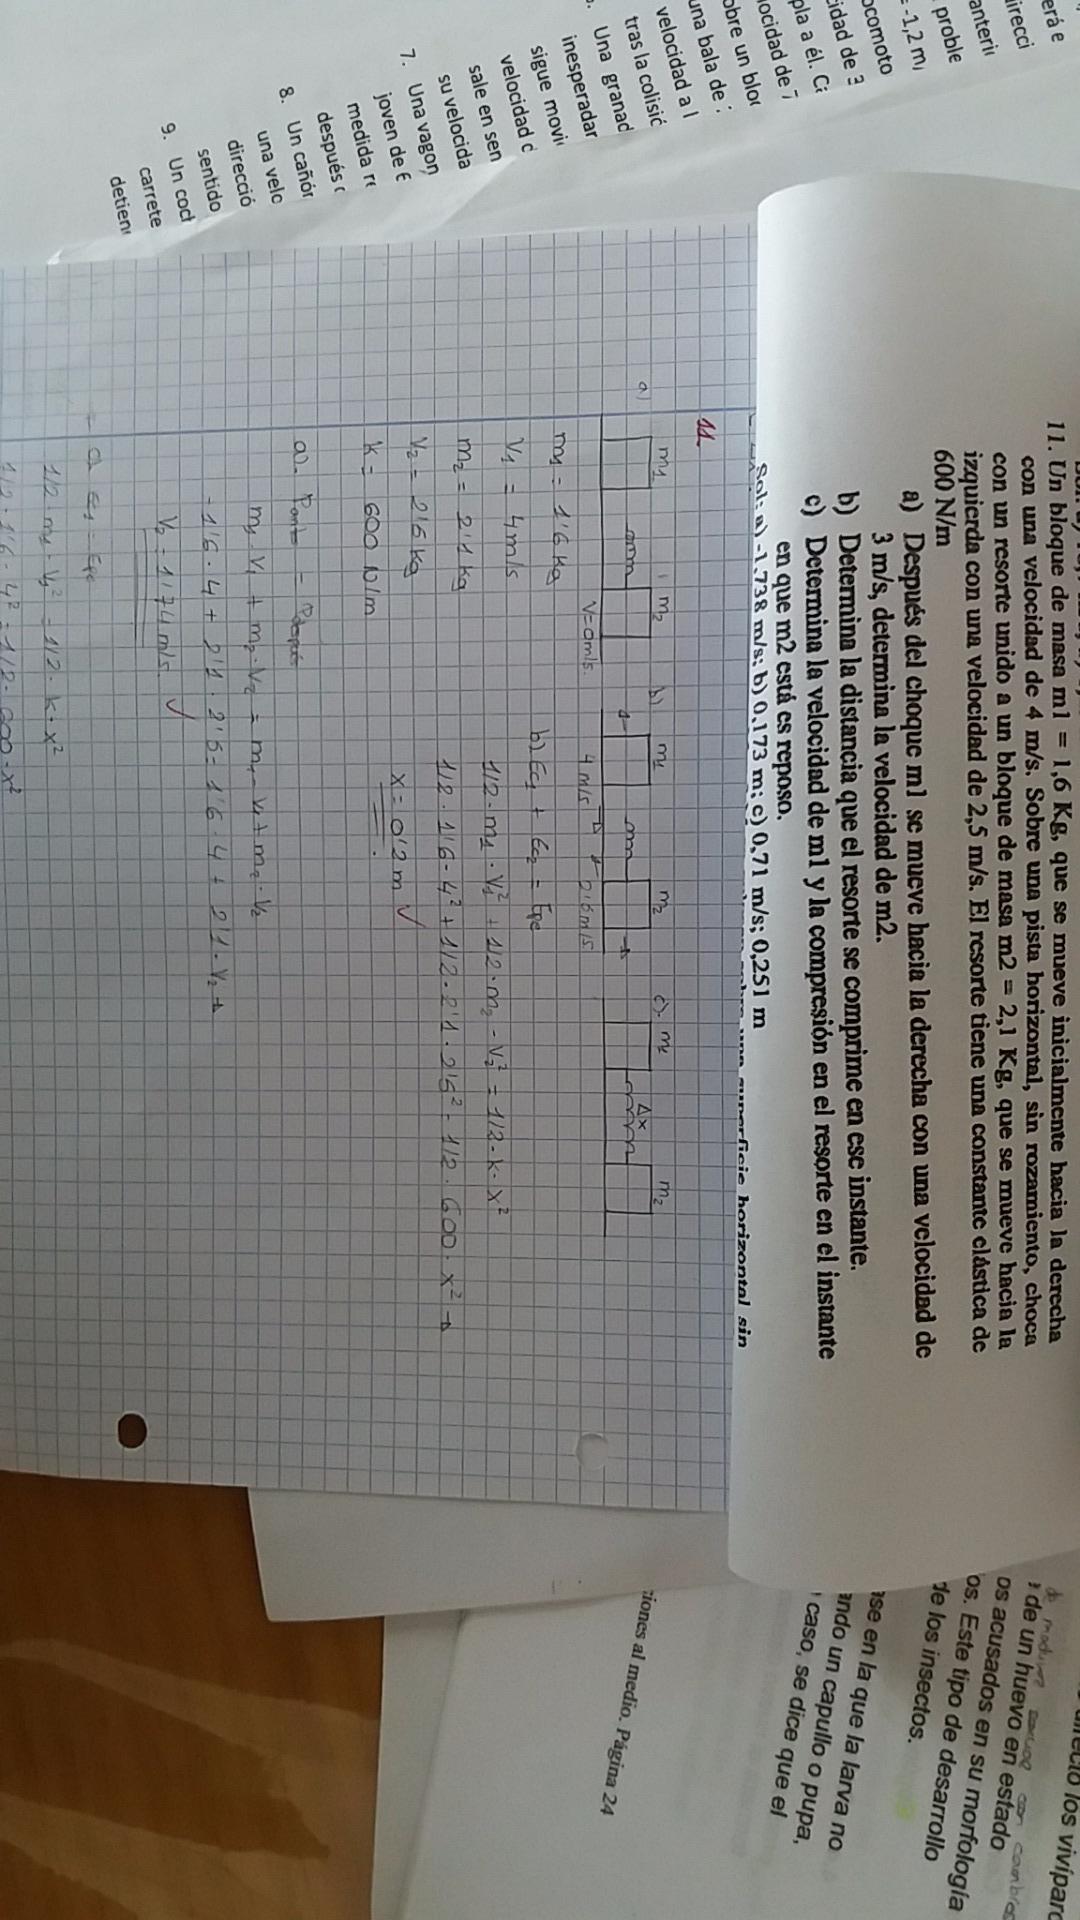 11. Un bloque de masa m1 = 1,6 Kg, que se mueve inicialmente hacia la derecha
con una velocidad de 4 m/s. Sobre una pista horizontal, sin rozamiento, choca
con un resorte unido a un bloque de masa m2 = 2,1 Kg, que se mueve hacia la
izquierda con una velocidad de 2,5 m/s. El resorte tiene una constante elástica de
600 N/m
a) Después del choque m1 se mueve hacia la derecha con una velocidad de
3 m/s, determina la velocidad de m2.
b) Determina la distancia que el resorte se comprime en ese instante.
c) Determina la velocidad de m1 y la compresión en el resorte en el instante
en que m2 está es reposo.
Sol: a) -1,738 m/s; b) 0,173 m; c) 0,71 m/s; 0,251 m
superficie horizontal sin
11.
a) m1 m2 b) m1 m2 c). m1 Δx m2
V=0m/s. 4 m/s 2'5m/s
m1 = 1'6 kg
V1 = 4m/s
m2 = 2'1 kg
V2 = 2'5 kg
k = 600 N/m
b) Ec1 + Ec2 = Epe
1/2 · m1 · V1² + 1/2 · m2 · V2² = 1/2 · k · x²
1/2 · 1'6 · 4² + 1/2 · 2'1 · 2'5² = 1/2 · 600 · x² →
x = 0'2 m
a). Pantes = Pdespués
m1 · V1 + m2 · V2 = m1 · V1 + m2 · V2
-1'6 · 4 + 2'1 · 2'5 = 1'6 · 4 + 2'1 · V2 →
V2 = 1'74 m/s.
Ec1 = Epe
1/2 · m1 · V1² = 1/2 · k · x²
1/2 · 1'6 · 4² = 1/2 · 600 · x²
erá e
irecci
anterio
proble
= -1,2 m/
ocomoto
idad de 3
pla a él. Ca
locidad de 7
obre un bloq
una bala de
velocidad a l
tras la colisió
Una granad
inesperadar
sigue movi
velocidad d
sale en sen
su velocida
7. Una vagon
joven de 6
medida re
después
8. Un cañón
una velo
direcció
sentido
9. Un coch
carrete
detien
los vivíparo
de un huevo en estado
os acusados en su morfología
os. Este tipo de desarrollo
de los insectos.
ase en la que la larva no
ando un capullo o pupa,
caso, se dice que el
ciones al medio. Página 24